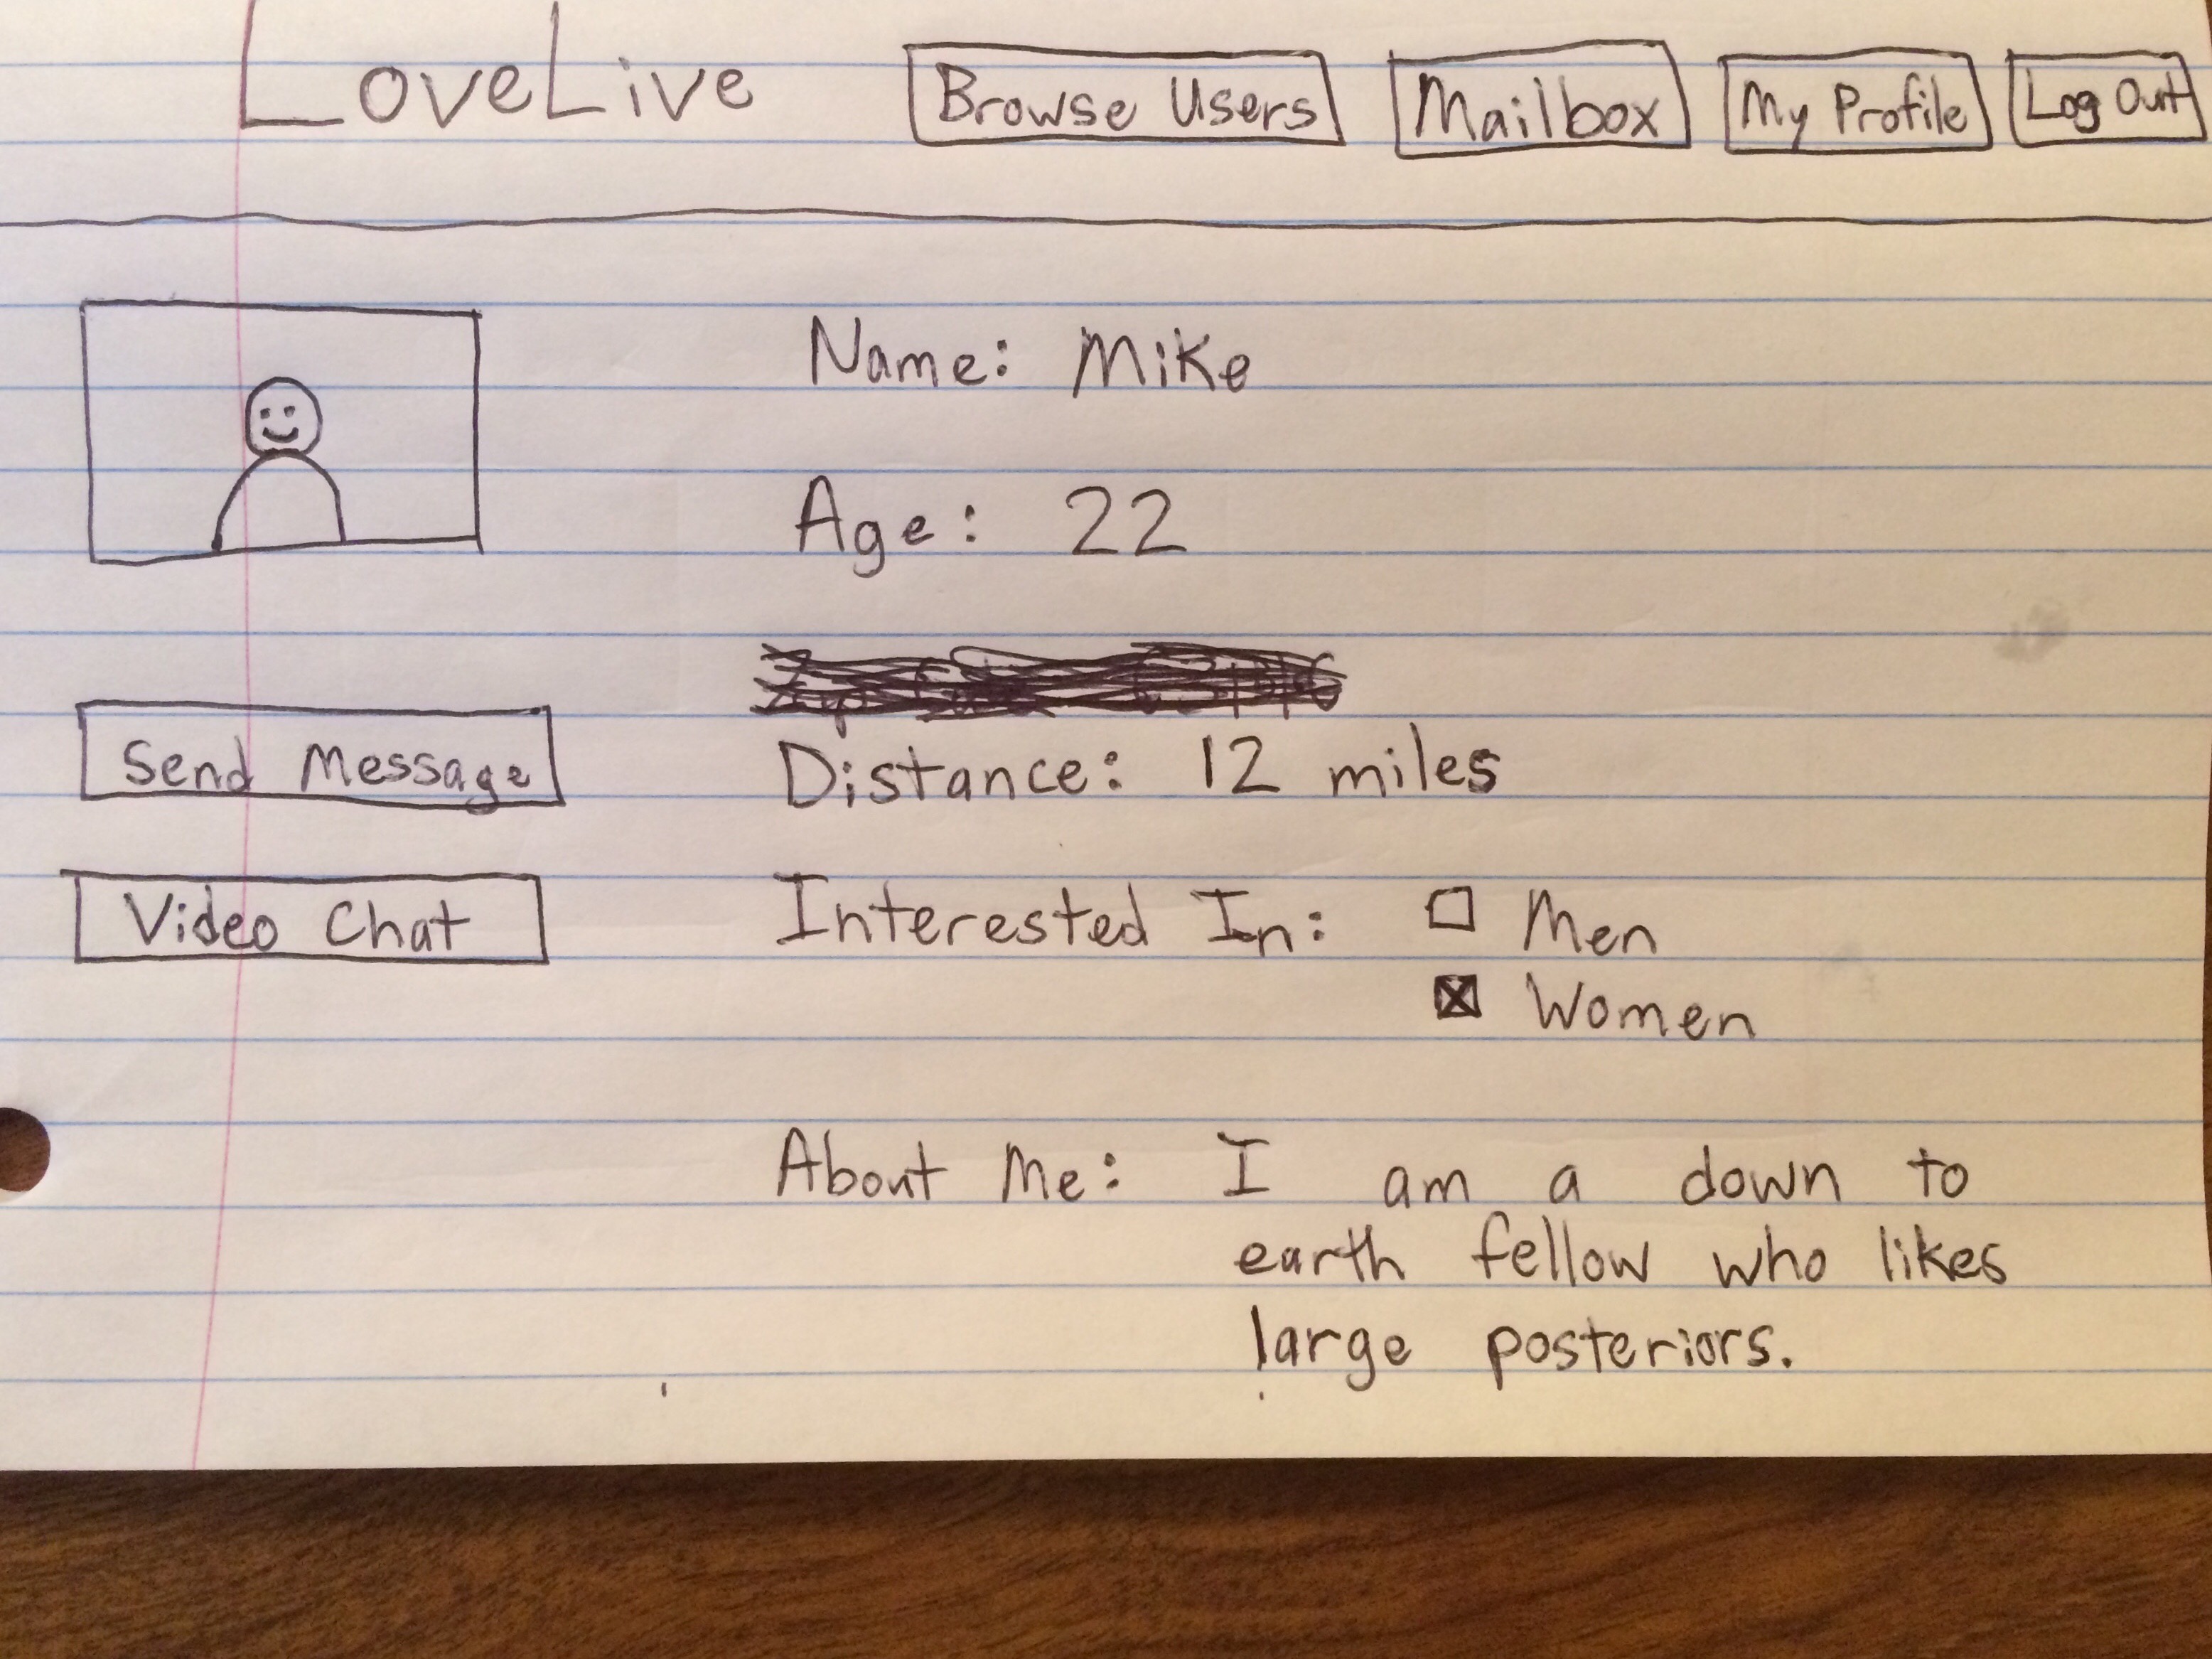 LoveLive Browse Users Mailbox My Profile Log Out
Name: Mike
Age: 22
Send Message
Distance: 12 miles
Video Chat
Interested In: Men
Women
About Me: I am a down to
earth fellow who likes
large posteriors.